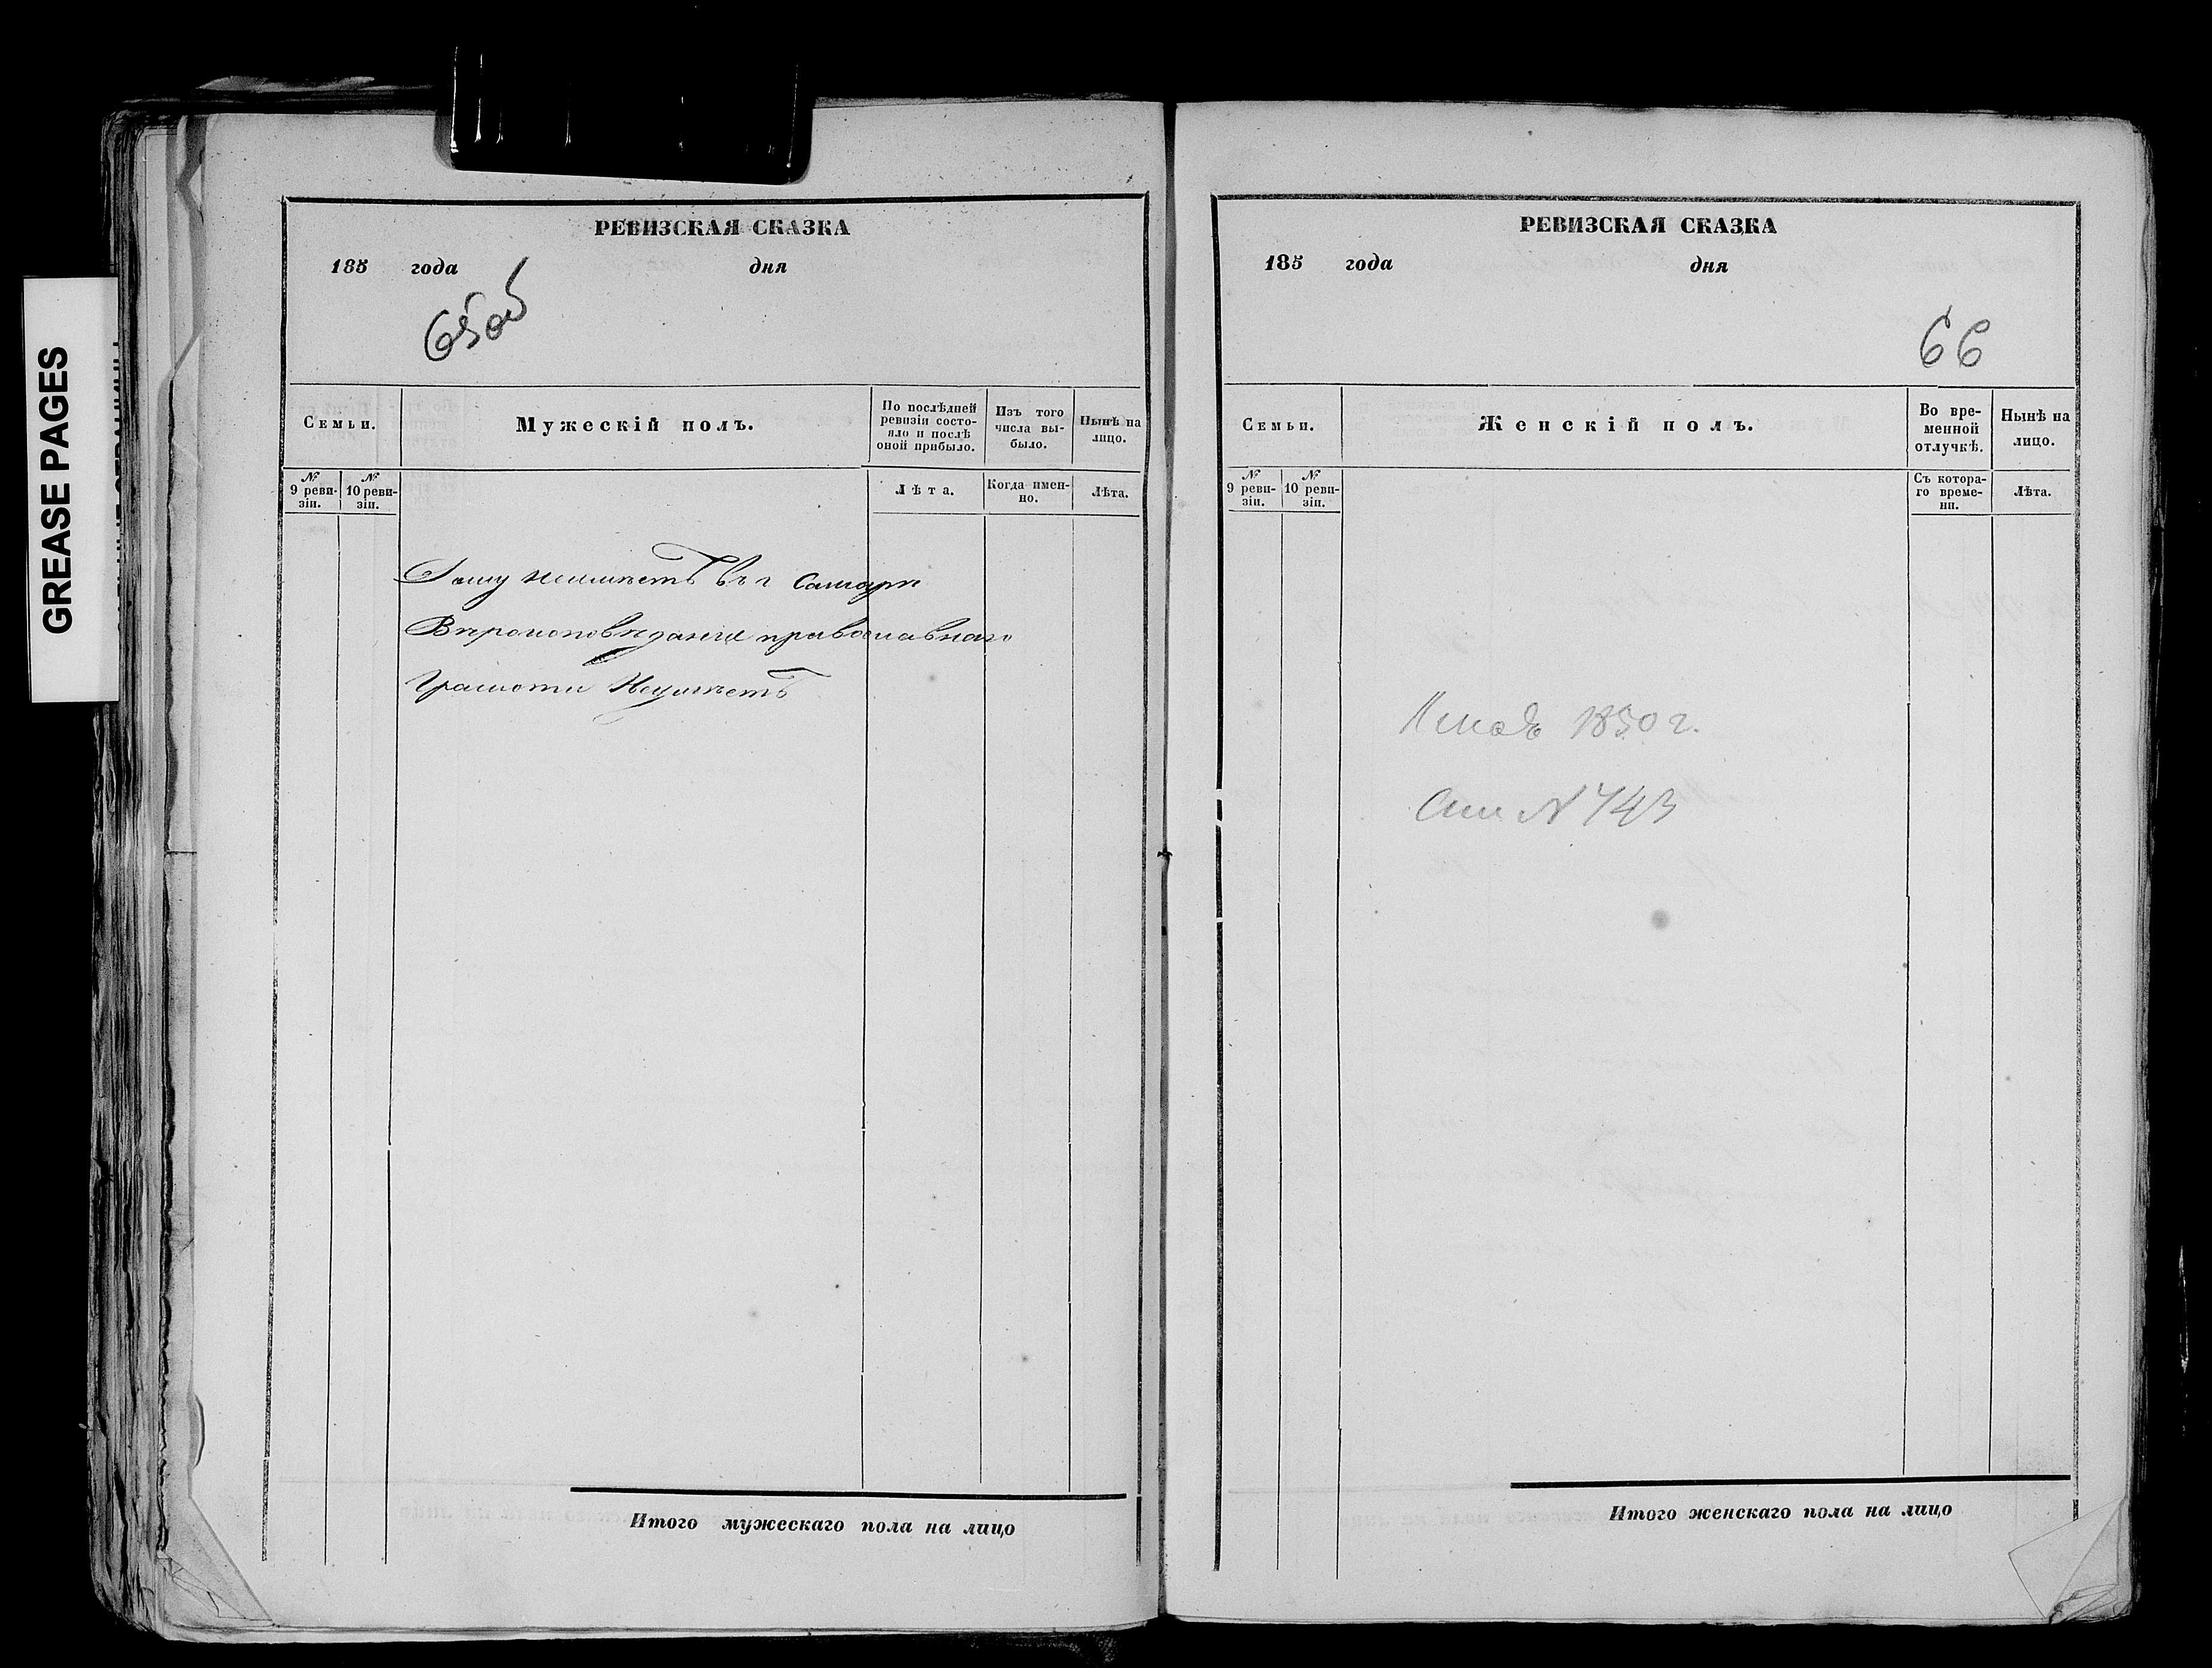 GREASE PAGES
РЕВИЗСКАЯ СКАЗКА
185 года дня
65об
Семьи.
Мужескій полъ.
По послѣдней ревизіи состо-
яло и послѣ
оной прибыло.
Изъ того
числа вы-
было.
Нынѣ на
лицо.
№
9 реви-
зіи.
№
10 реви-
зіи.
Лѣта.
Когда имен-
но.
Лѣта.
Дому неимѣетъ въ г Самарѣ
Вѣроисповѣданія православнаго
Грамоти Неумѣетъ
Итого мужескаго пола на лицо
РЕВИЗСКАЯ СКАЗКА
185 года дня
66
Семьи.
Женскій полъ.
Во вре-
менной
отлучкѣ.
Нынѣ на
лицо.
№
9 реви-
зіи.
№
10 реви-
зіи.
Съ котора-
го време-
ни.
Лѣта.
1850 г.
N 743
Итого женскаго пола на лицо